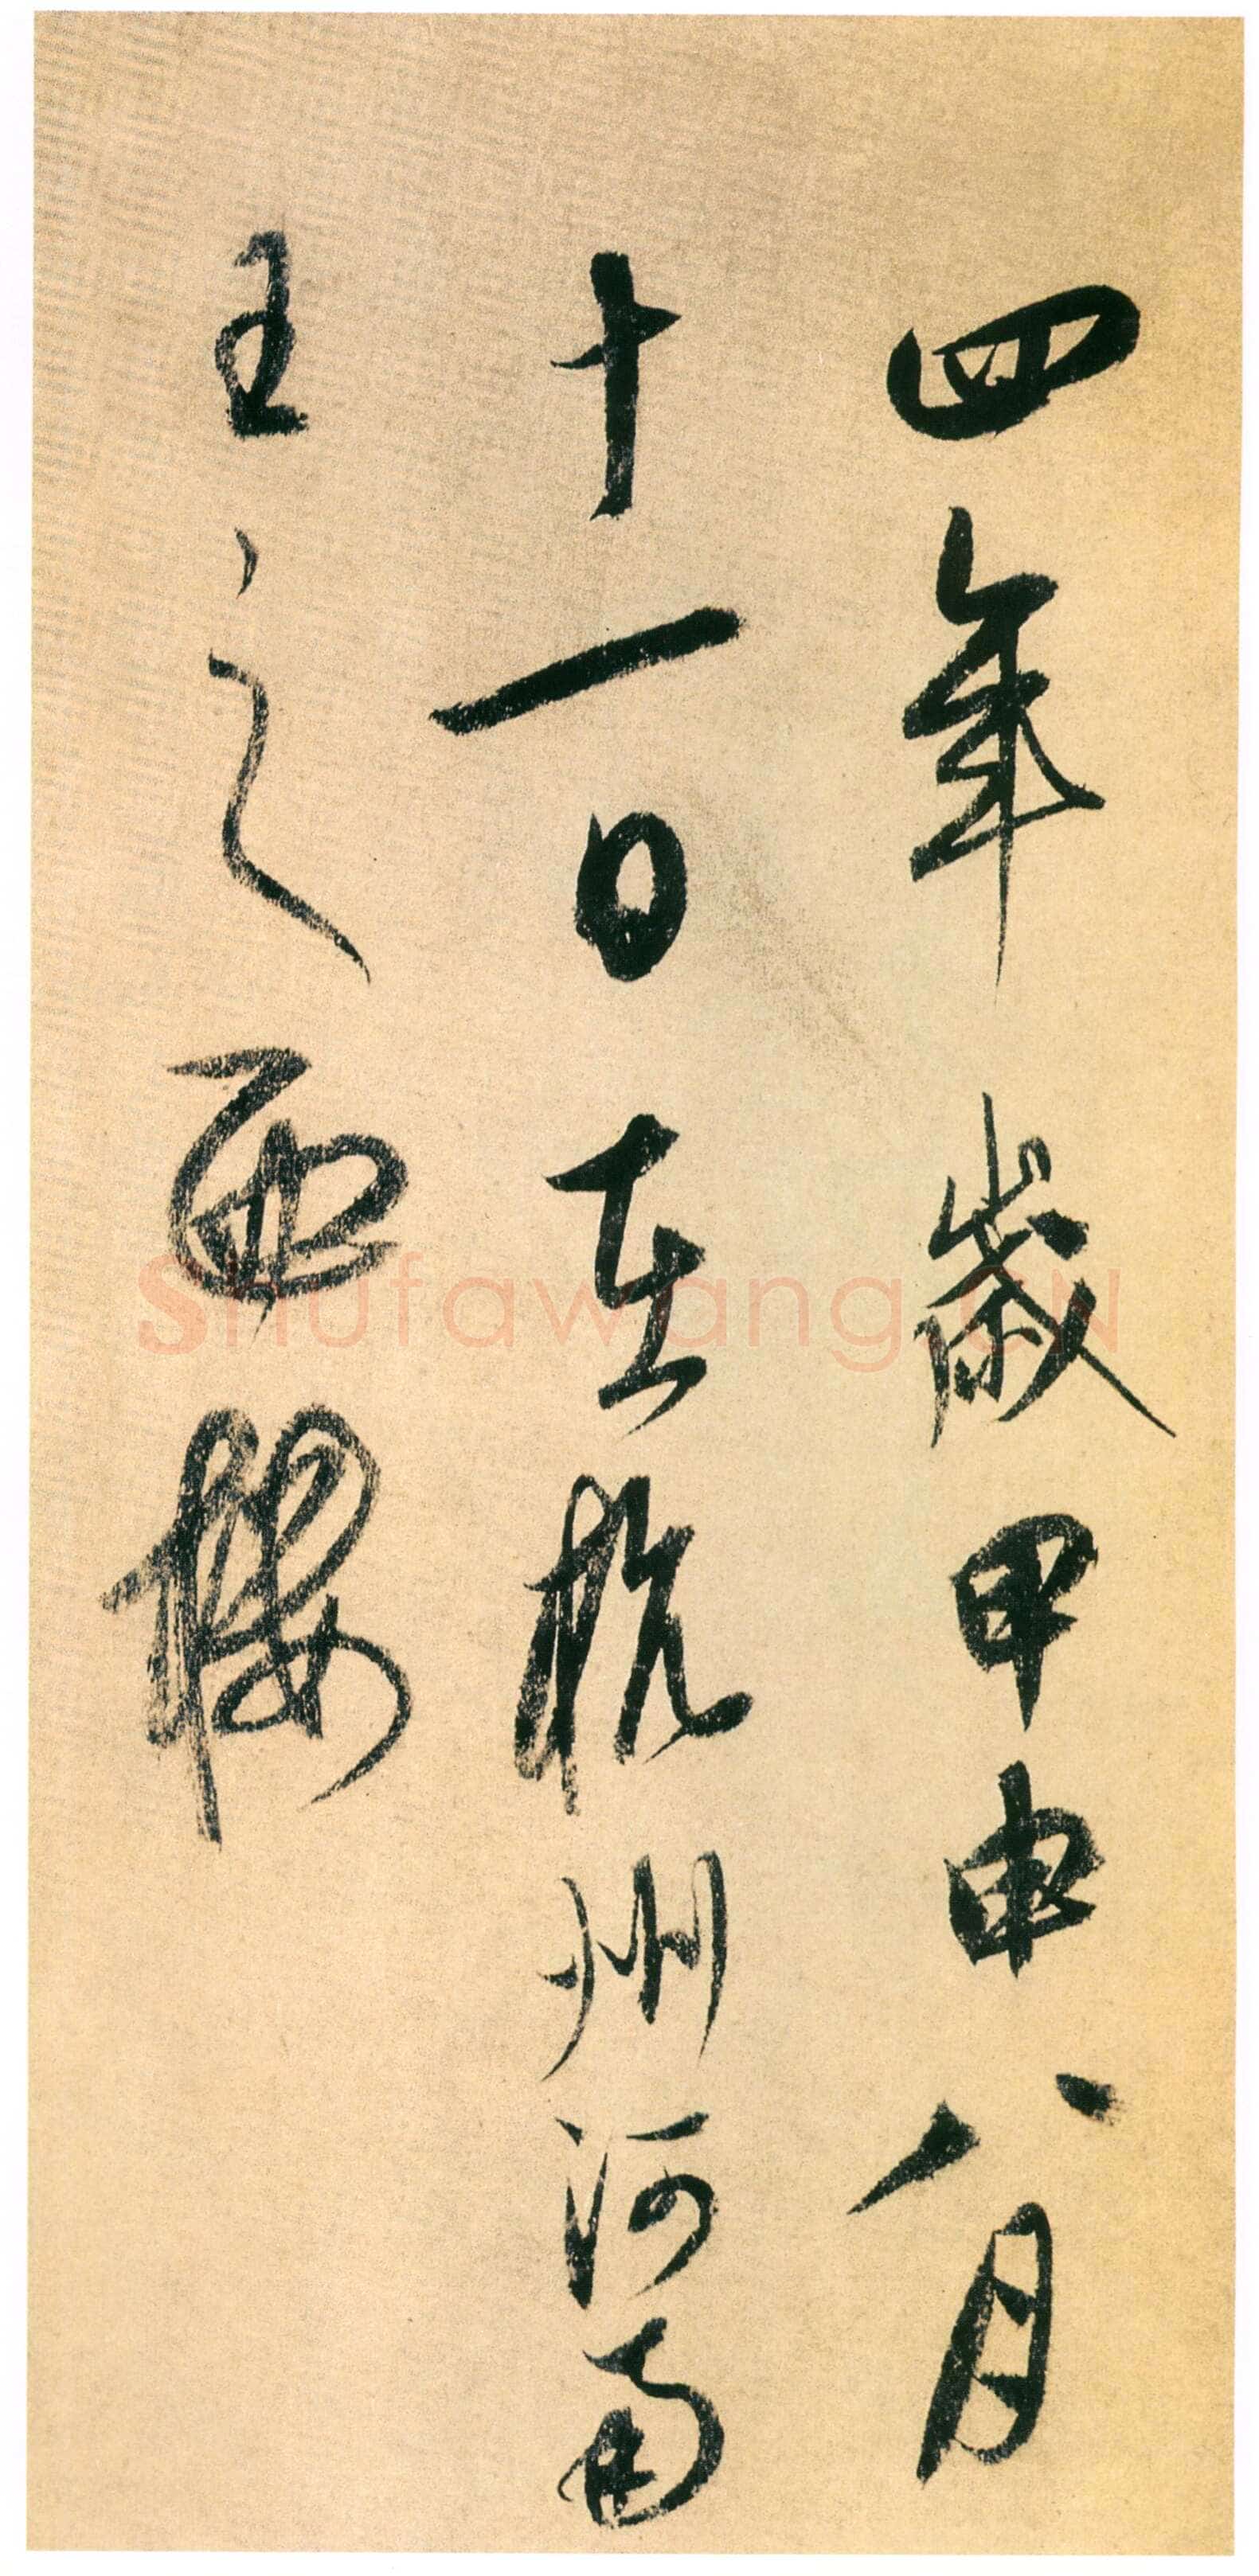 四年歲甲申八月
十一日在杭州河南
王之西樓
Shufawang.CN